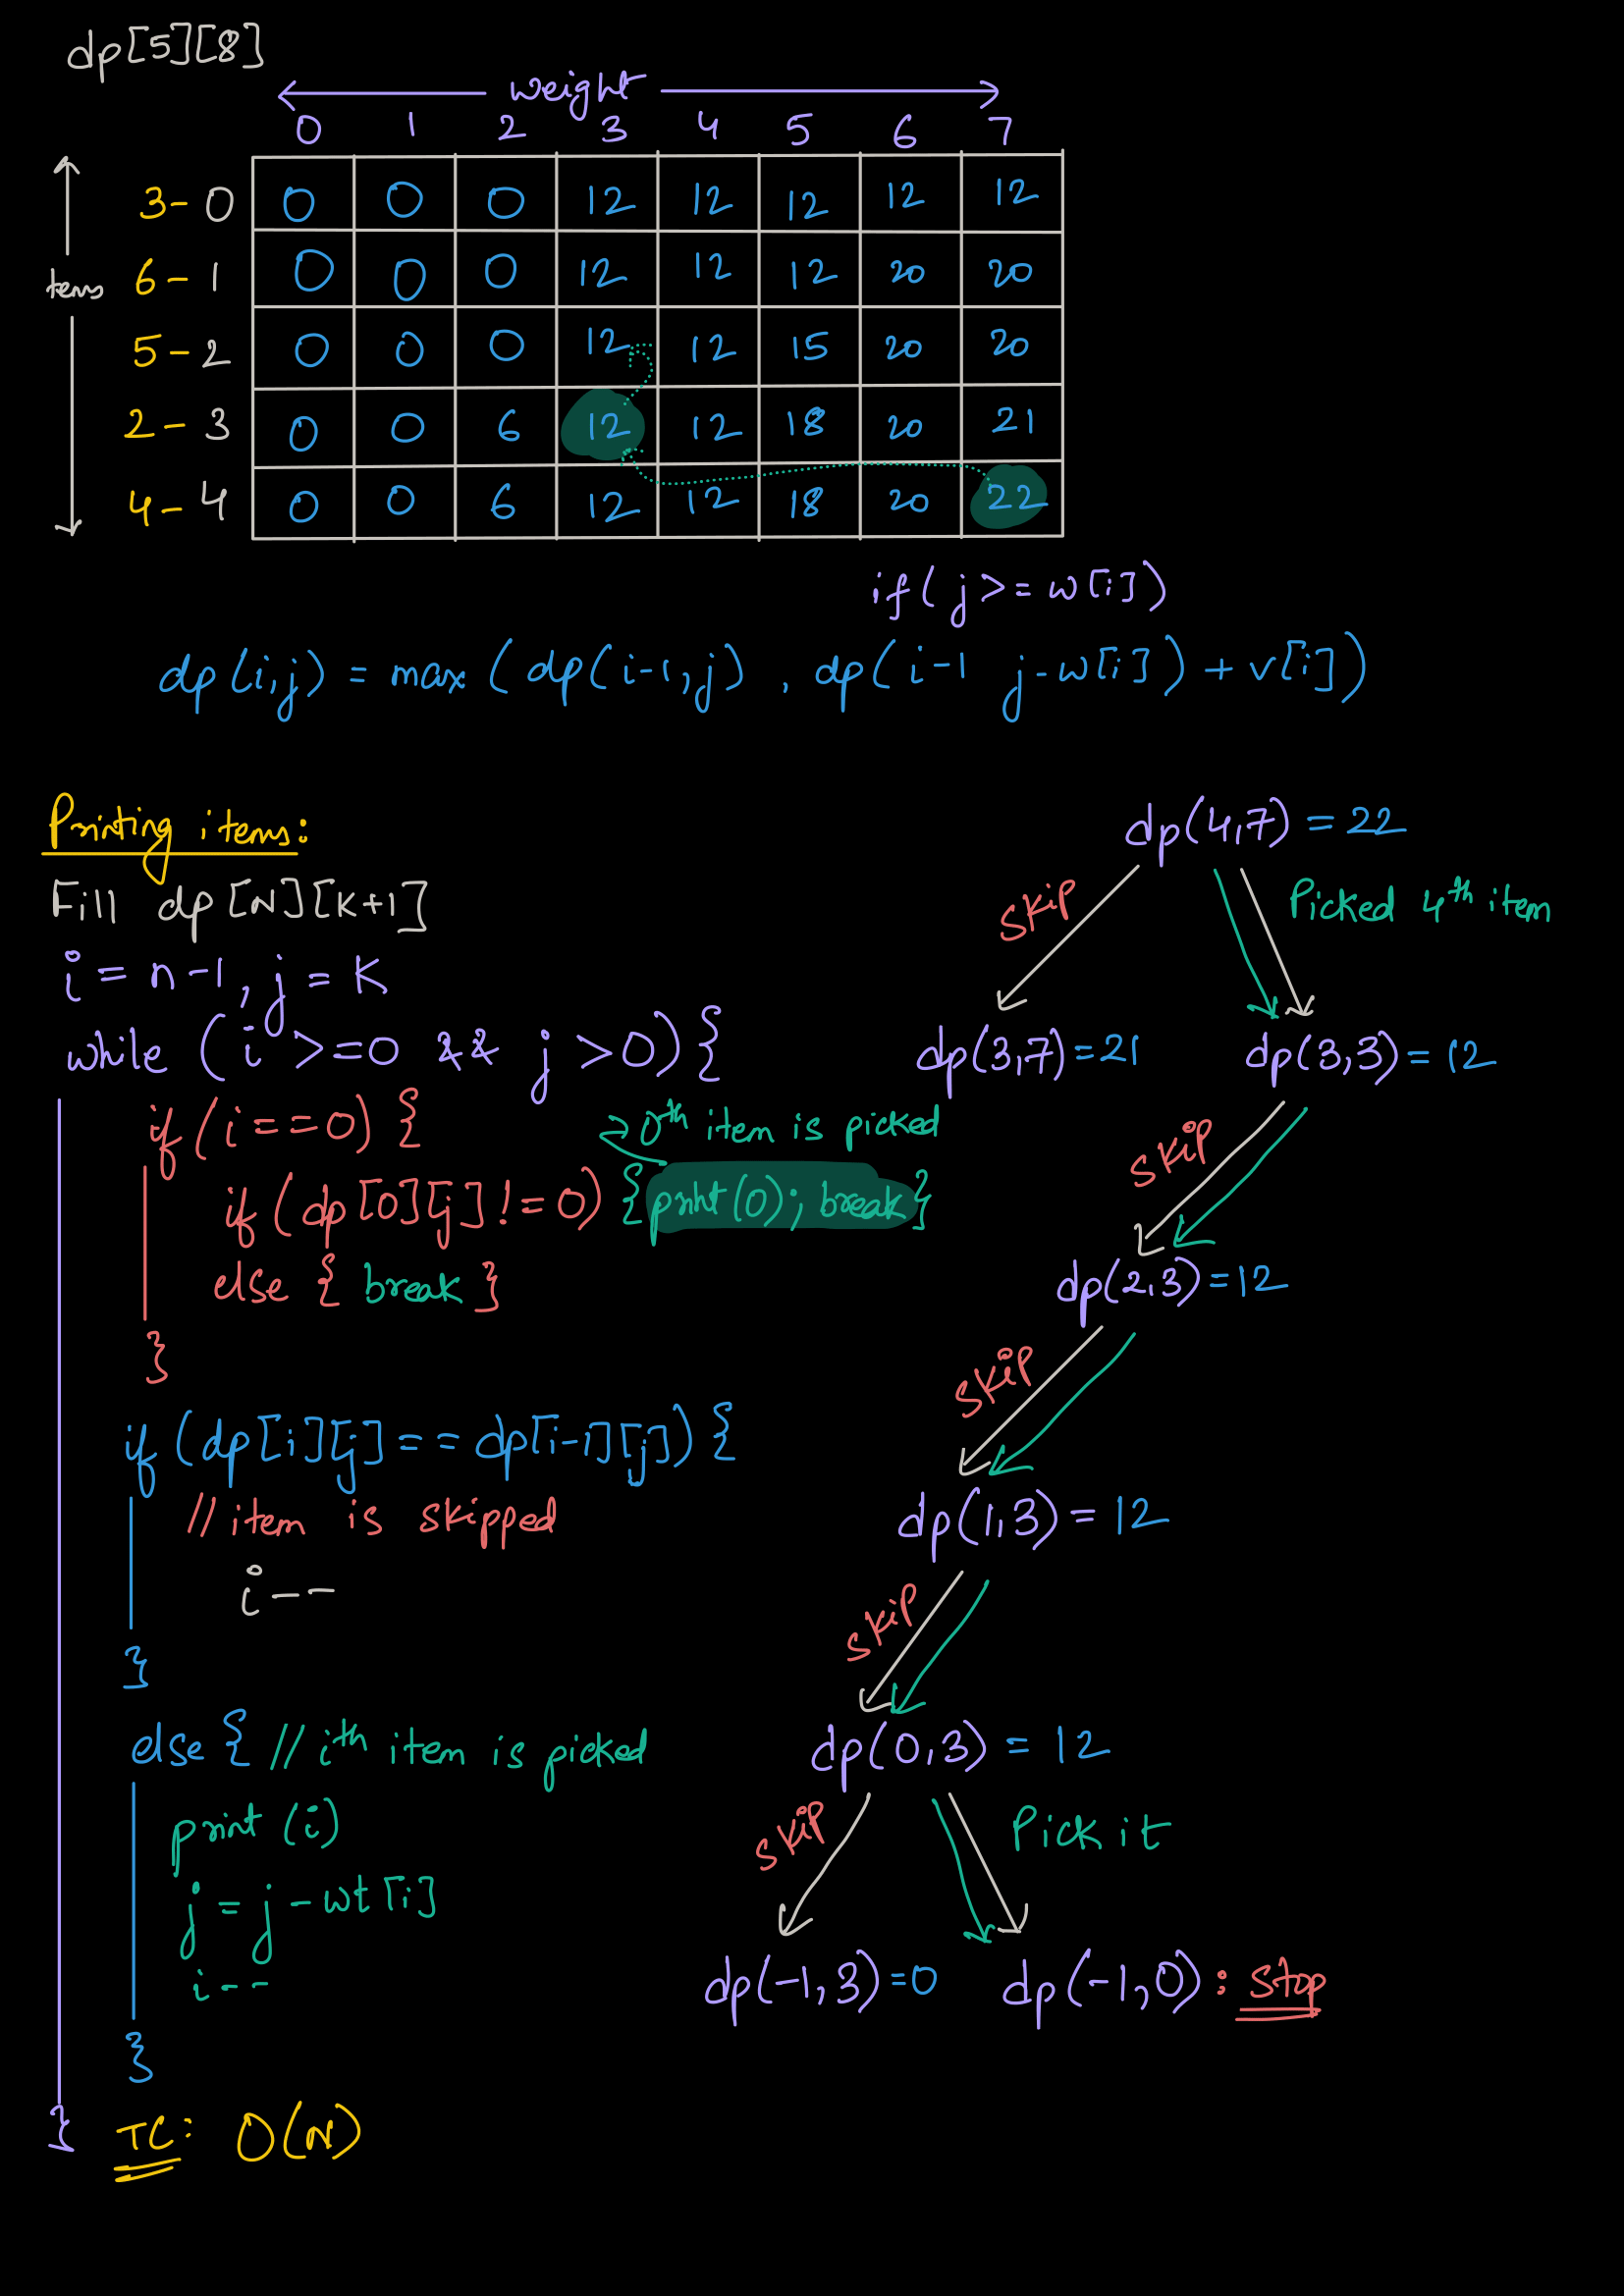 dp[5][8]
weight
0 1 2 3 4 5 6 7
3-0 0 0 0 12 12 12 12 12
6-1 0 0 0 12 12 12 20 20
items
5-2 0 0 0 12 12 15 20 20
2-3 0 0 6 12 12 18 20 21
4-4 0 0 6 12 12 18 20 22
if( j >= w[i])
dp(i,j) = max ( dp(i-1,j) , dp( i-1 j-w[i]) + v[i])
Printing items:
Fill dp[N][K+1]
i = n-1, j = K
while (i >=0 && j >0) {
if(i ==0) {
→ 0th item is picked
if(dp[0][j] != 0) {print(0); break}
else { break }
}
if (dp[i][j] == dp[i-1][j]) {
// item is skipped
i--
}
else { // ith item is picked
print (i)
j = j - wt[i]
i--
}
} TC: O(N)
dp(4,7) = 22
skip
Picked 4th item
dp(3,7) = 21
dp(3,3) = 12
skip
dp(2,3) = 12
skip
dp(1,3) = 12
skip
dp(0,3) = 12
skip
Pick it
dp(-1,3) = 0
dp(-1,0) : stop